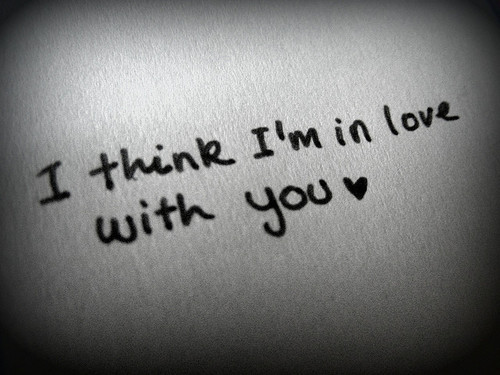 I think I'm in love
with you♥